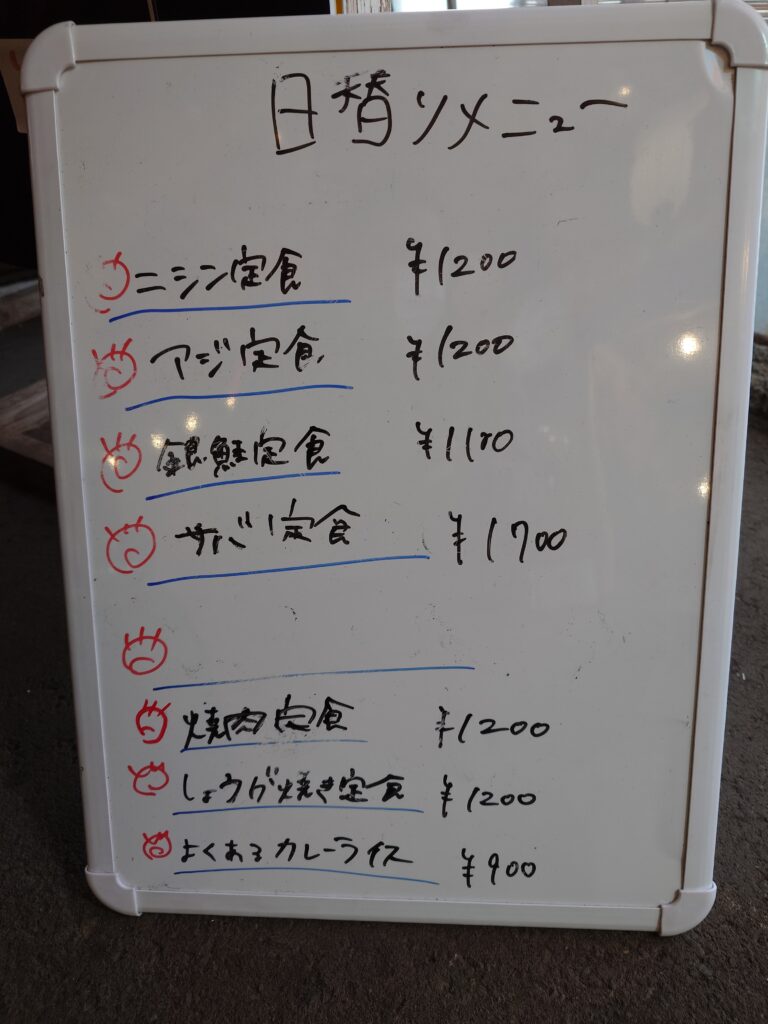 日替りメニュー
ニシン定食 ¥1200
アジ定食 ¥1200
銀鮭定食 ¥1100
サバ定食 ¥1700
焼肉定食 ¥1200
しょうが焼き定食 ¥1200
よくあるカレーライス ¥900